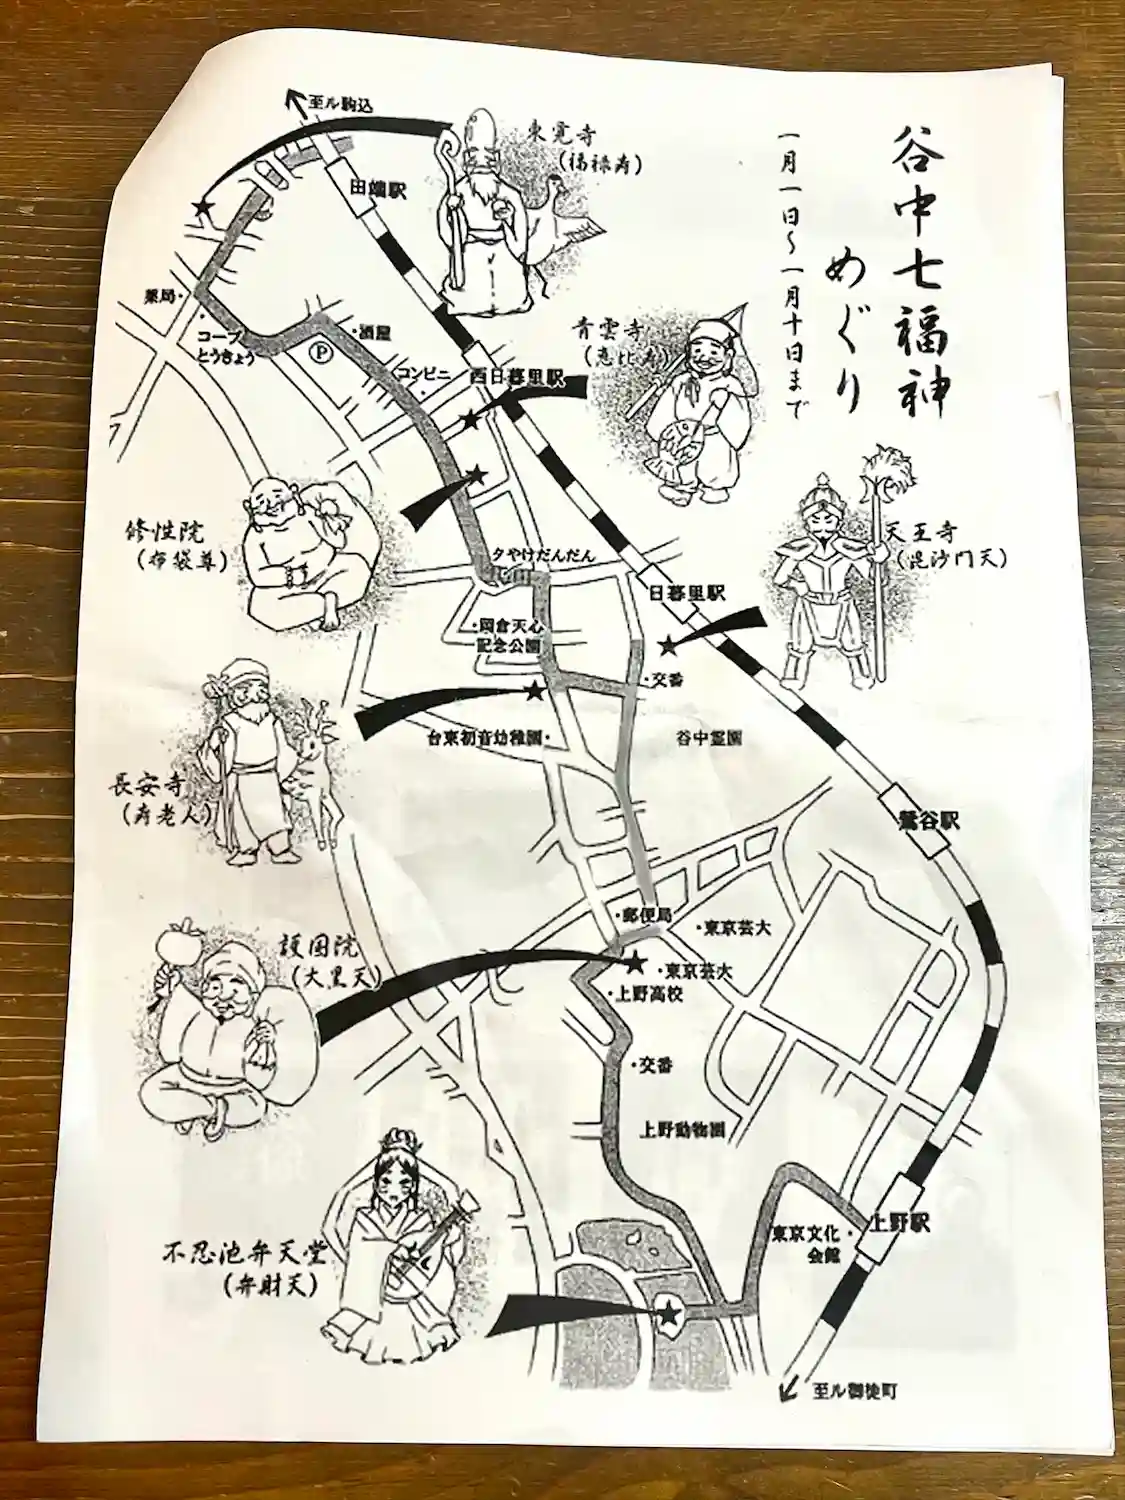 谷中七福神
めぐり
一月一日〜一月十日まで
至ル駒込
田端駅
東覚寺
(福禄寿)
薬局・
コープ
とうきょう
・酒屋
P
コンビニ
西日暮里駅
青雲寺
(恵比寿)
修性院
(布袋尊)
天王寺
(毘沙門天)
夕やけだんだん
日暮里駅
・岡倉天心
記念公園
・交番
台東初音幼稚園・
谷中霊園
長安寺
(寿老人)
鶯谷駅
・郵便局
・東京芸大
護国院
(大黒天)
・東京芸大
・上野高校
・交番
上野動物園
不忍池弁天堂
(弁財天)
東京文化・
会館
上野駅
至ル御徒町